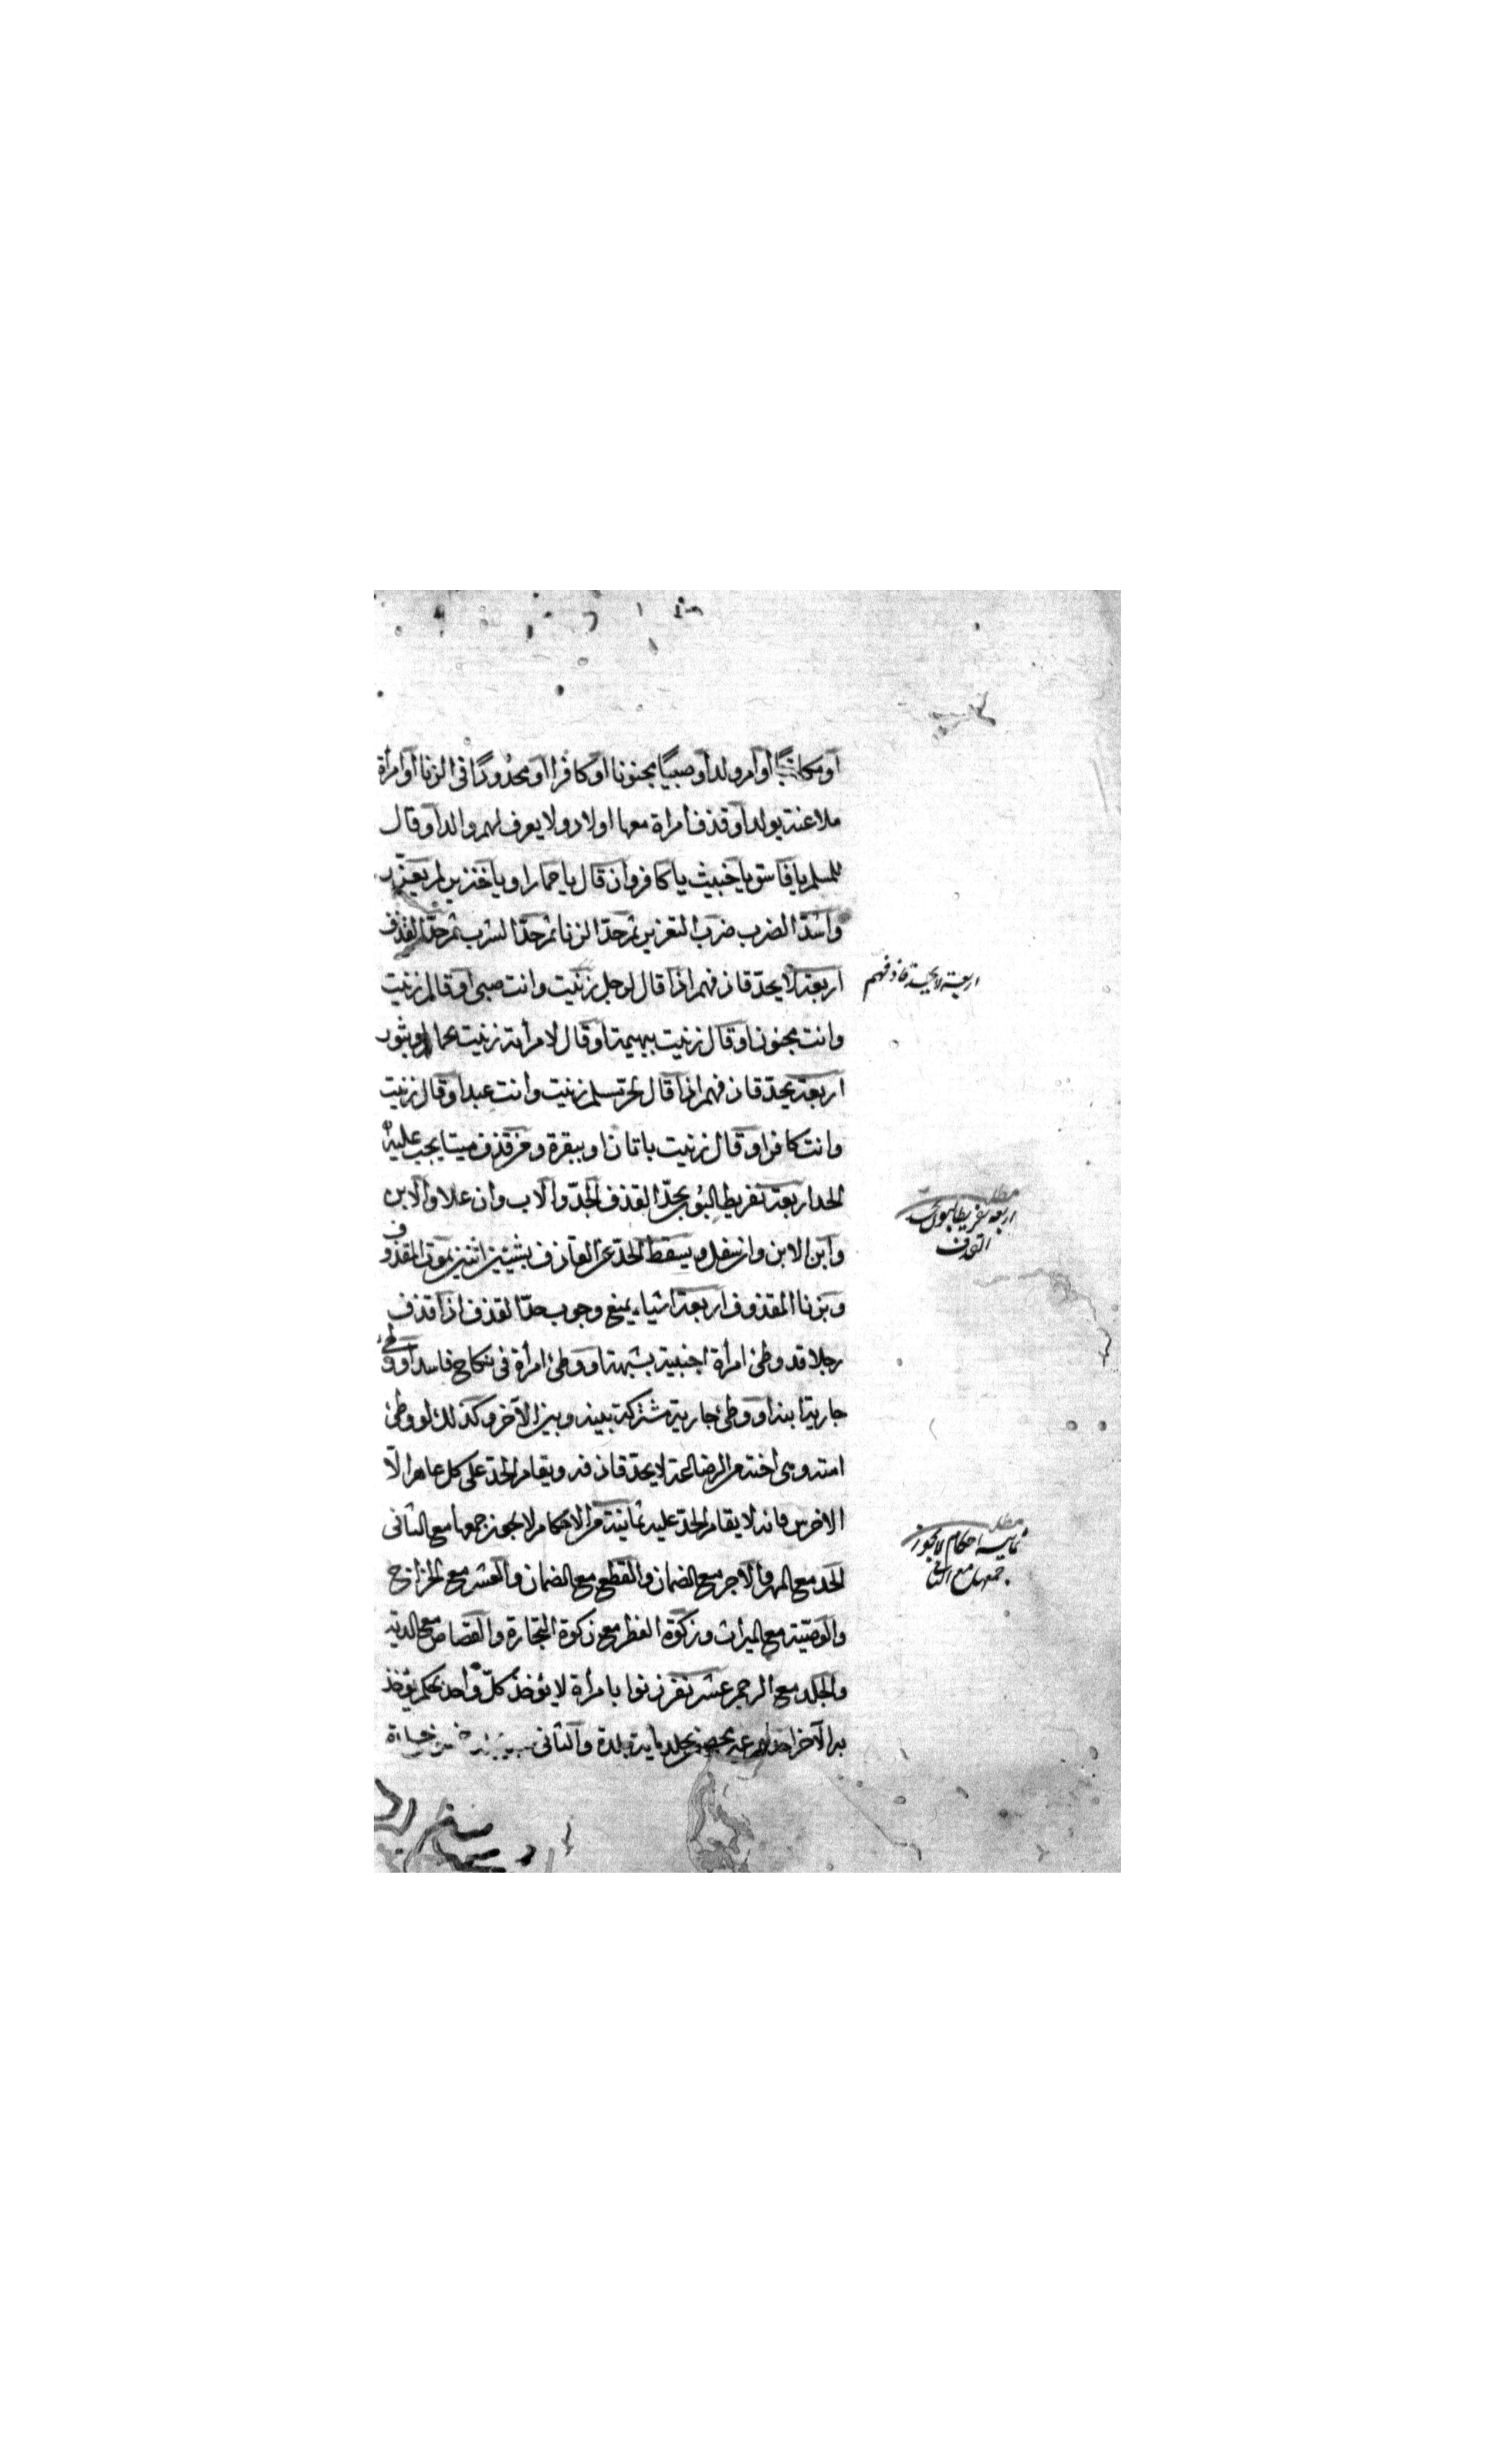 أو مكاتبًا أو أم ولد أو صبيًا مجنونا او كافرا أو محدودًا فى الزنا أو امرأة
ملاعنة بولد أو قذف امراة معها اولاد ولا يعرف لهم والد أو قال
للمسلم يا فاسق يا خبيث يا كافر وان قال يا حمار او يا خنزير لم يعزّر
وأشدّ الضرب ضرب التعزير ثم حدّ الزنا ثم حدّ الشرب ثم حدّ القذف
اربعة لا يحدّ قاذفهم اذا قال لرجل زنيت وانت صبى أو قال زنيت
وانت مجنون او قال زنيت ببهيمة أو قال لامرأته زنيت بحمار او بثور
اربعة يحدّ قاذفهم اذا قال لحر مسلم زنيت وأنت عبد او قال زنيت
وانت كافر او قال زنيت باتان او ببقرة ومن قذف ميتا يجب عليه
الحد اربعة نفر يطالبون بحدّ القذف الجدّ والآب وان علا والآبن
وابن الابن وان سفل ويسقط الحدّ عن القاذف بشيئين اثنين بموت المقذوف
وبزنا المقذوف اربعة اشياء يمنع وجوب حدّ القذف اذا قذف
رجلا قد وطئ امرأة اجنبية بشبهة او وطئ امرأة فى نكاح فاسد أو وطئ
جارية ابنه او وطئ جارية مشتركة بينه وبين الآخر وكذلك لو وطئ
امته وهى اخته من الرضاعة لا يحدّ قاذفه ويقام الحدّ على كل عاهر الّا
الاخرس فانه لا يقام الحدّ عليه ثمانية من الاحكام لا يجوز جمعها مع الثانى
الحد مع المهر والآجر مع الضمان والقطع مع الضمان والعشر مع الخراج
والوصيّة مع الميراث وزكوة الفطر مع زكوة التجارة والقصاص مع الدية
والجلد مع الرجم عشر نفر زنوا بامرأة لا يؤخذ كلّ واحد بحكم يؤخذ
به الآخر يجلد ماية جلدة والثانى
اربعة لا يحد قاذفهم
مطلب
اربعة نفر يطالبون بحد
القذف
مطلب
ثمانية احكام لا يجوز
جمعها مع الثانى